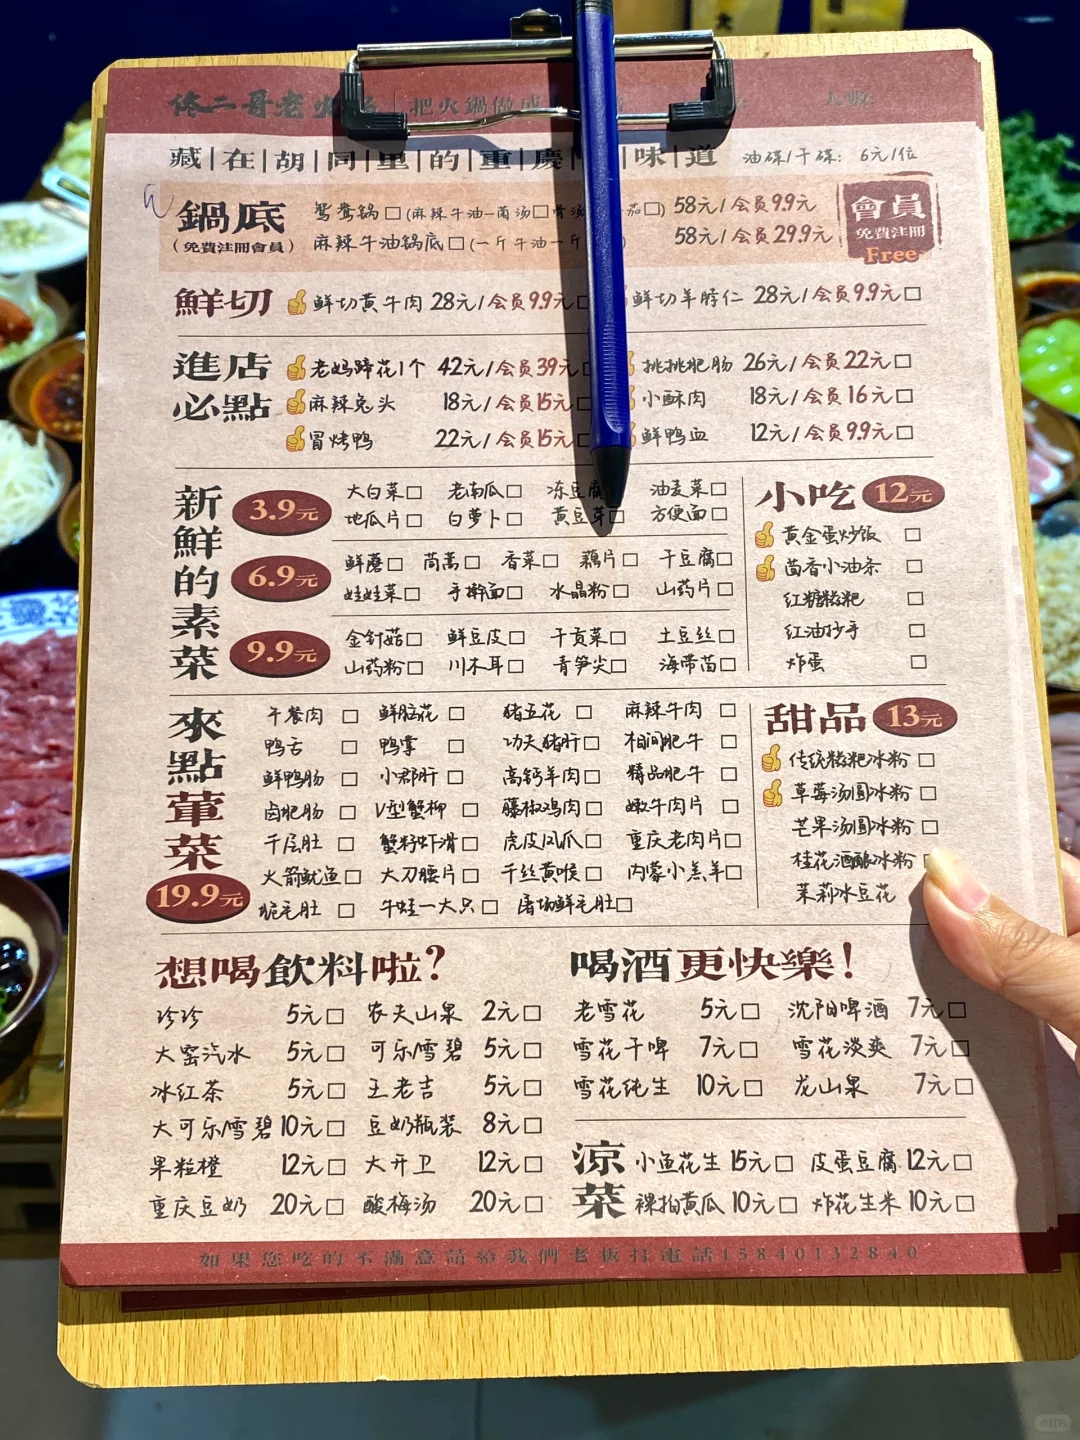 佟二哥老火
把火鍋做成
藏|在|胡|同|里|的|重|慶| |味|道 油碟/干碟: 6元/位
鍋底
(免費注冊會員)
鸳鸯锅□(麻辣牛油—菌汤□骨汤 茄□) 58元/会员9.9元
麻辣牛油锅底□(一斤牛油一斤 ) 58元/会员29.9元
會員
免費注冊
Free
鮮切
鲜切黄牛肉 28元/会员9.9元□
鲜切羊脖仁 28元/会员9.9元□
進店必點
老妈蹄花1个 42元/会员39元
挑挑肥肠 26元/会员22元□
麻辣兔头 18元/会员15元□
小酥肉 18元/会员16元□
冒烤鸭 22元/会员15元□
鲜鸭血 12元/会员9.9元□
新鮮的素菜
3.9元
大白菜□ 老南瓜□ 冻豆腐 油麦菜□
地瓜片□ 白萝卜□ 黄豆芽□ 方便面□
6.9元
鲜蘑□ 茼蒿□ 香菜□ 藕片□ 干豆腐□
娃娃菜□ 手擀面□ 水晶粉□ 山药片□
9.9元
金针菇□ 鲜豆皮□ 干贡菜□ 土豆丝□
山药粉□ 川木耳□ 青笋尖□ 海带苗□
小吃 12元
黄金蛋炒饭 □
茴香小油条 □
红糖糍粑 □
红油抄手 □
炸蛋 □
來點葷菜
19.9元
午餐肉 □ 鲜脑花 □ 猪五花 □ 麻辣牛肉 □
鸭舌 □ 鸭掌 □ 功夫猪肝□ 相间肥牛 □
鲜鸭肠 □ 小郡肝 □ 高钙羊肉□ 精品肥牛 □
卤肥肠 □ V型蟹柳 □ 藤椒鸡肉□ 嫩牛肉片 □
千层肚 □ 蟹籽虾滑□ 虎皮凤爪□ 重庆老肉片□
火箭鱿鱼□ 大刀腰片□ 千丝黄喉□ 内蒙小羔羊□
脆毛肚 □ 牛蛙一大只 □ 屠场鲜毛肚□
甜品 13元
传统糍粑冰粉 □
草莓汤圆冰粉 □
芒果汤圆冰粉 □
桂花酒酿冰粉
茉莉冰豆花
想喝飲料啦?
珍珍 5元□ 农夫山泉 2元□
大窑汽水 5元□ 可乐/雪碧 5元□
冰红茶 5元□ 王老吉 5元□
大可乐/雪碧 10元□ 豆奶瓶装 8元□
果粒橙 12元□ 大开卫 12元□
重庆豆奶 20元□ 酸梅汤 20元□
喝酒更快樂!
老雪花 5元□ 沈阳啤酒 7元□
雪花干啤 7元□ 雪花淡爽 7元□
雪花纯生 10元□ 龙山泉 7元□
涼菜
小鱼花生 15元□ 皮蛋豆腐 12元□
裸拍黄瓜 10元□ 炸花生米 10元□
如果您吃的不滿意請給我們老板打電話15840132840
小红书